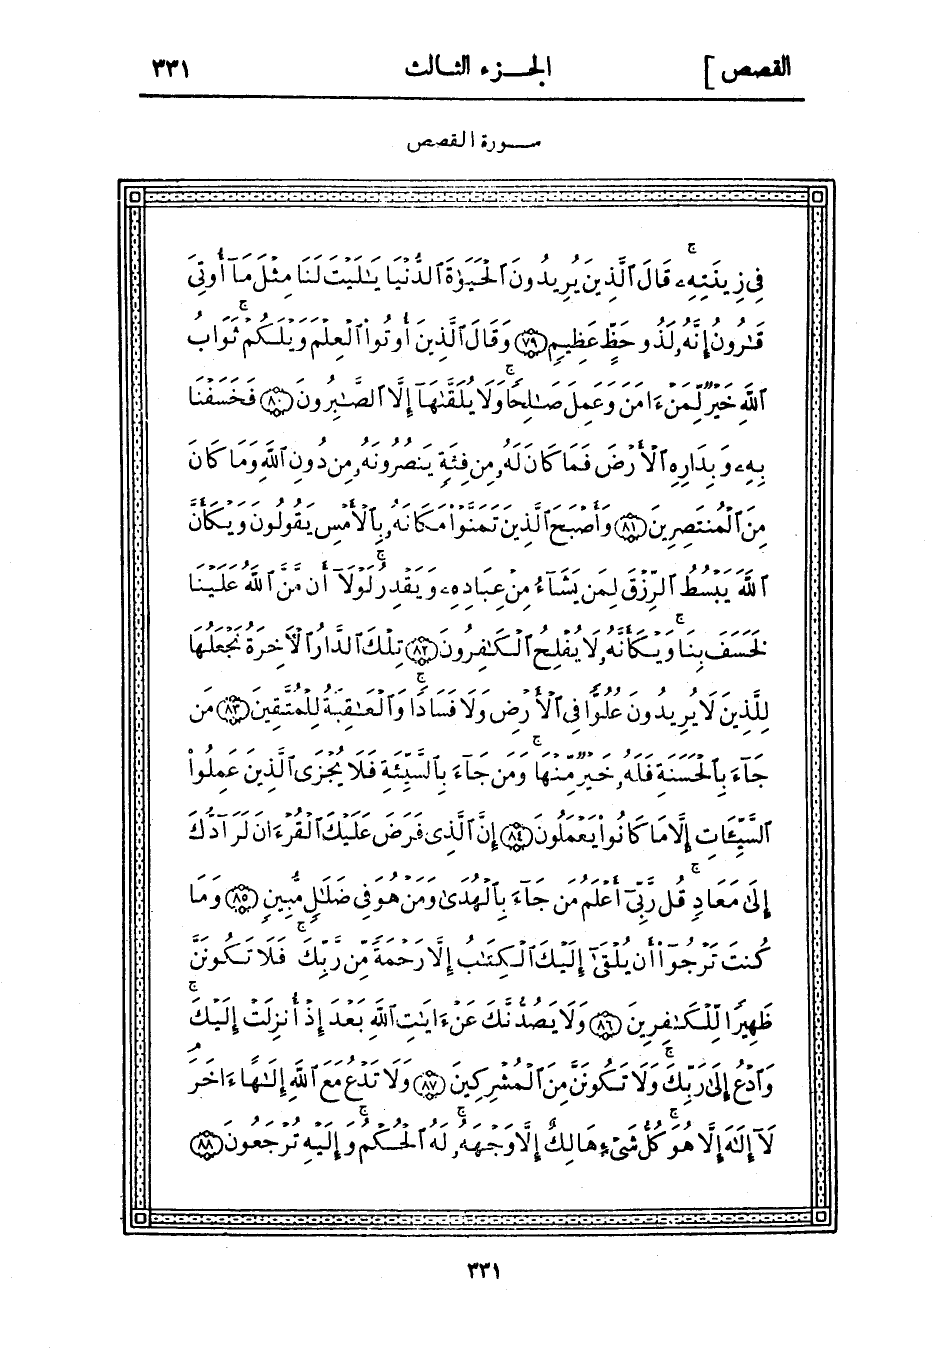 القصص ] الجزء الثالث ٣٣١
سورة القصص
فِى زِينَتِهِۦ ۖ قَالَ ٱلَّذِينَ يُرِيدُونَ ٱلْحَيَوٰةَ ٱلدُّنْيَا يَـٰلَيْتَ لَنَا مِثْلَ مَآ أُوتِىَ
قَـٰرُونُ إِنَّهُۥ لَذُو حَظٍّ عَظِيمٍ ﴿٧٩﴾ وَقَالَ ٱلَّذِينَ أُوتُوا۟ ٱلْعِلْمَ وَيْلَكُمْ ثَوَابُ
ٱللَّهِ خَيْرٌ لِّمَنْ ءَامَنَ وَعَمِلَ صَـٰلِحًا ۚ وَلَا يُلَقَّىٰهَآ إِلَّا ٱلصَّـٰبِرُونَ ﴿٨٠﴾ فَخَسَفْنَا
بِهِۦ وَبِدَارِهِ ٱلْأَرْضَ فَمَا كَانَ لَهُۥ مِن فِئَةٍ يَنصُرُونَهُۥ مِن دُونِ ٱللَّهِ وَمَا كَانَ
مِنَ ٱلْمُنتَصِرِينَ ﴿٨١﴾ وَأَصْبَحَ ٱلَّذِينَ تَمَنَّوْا۟ مَكَانَهُۥ بِٱلْأَمْسِ يَقُولُونَ وَيْكَأَنَّ
ٱللَّهَ يَبْسُطُ ٱلرِّزْقَ لِمَن يَشَآءُ مِنْ عِبَادِهِۦ وَيَقْدِرُ ۚ لَوْلَآ أَن مَّنَّ ٱللَّهُ عَلَيْنَا
لَخَسَفَ بِنَا ۚ وَيْكَأَنَّهُۥ لَا يُفْلِحُ ٱلْكَـٰفِرُونَ ﴿٨٢﴾ تِلْكَ ٱلدَّارُ ٱلْـَٔاخِرَةُ نَجْعَلُهَا
لِلَّذِينَ لَا يُرِيدُونَ عُلُوًّا فِى ٱلْأَرْضِ وَلَا فَسَادًا ۚ وَٱلْعَـٰقِبَةُ لِلْمُتَّقِينَ ﴿٨٣﴾ مَن
جَآءَ بِٱلْحَسَنَةِ فَلَهُۥ خَيْرٌ مِّنْهَا ۚ وَمَن جَآءَ بِٱلسَّيِّئَةِ فَلَا يُجْزَى ٱلَّذِينَ عَمِلُوا۟
ٱلسَّيِّـَٔاتِ إِلَّا مَا كَانُوا۟ يَعْمَلُونَ ﴿٨٤﴾ إِنَّ ٱلَّذِى فَرَضَ عَلَيْكَ ٱلْقُرْءَانَ لَرَآدُّكَ
إِلَىٰ مَعَادٍ ۚ قُل رَّبِّىٓ أَعْلَمُ مَن جَآءَ بِٱلْهُدَىٰ وَمَنْ هُوَ فِى ضَلَـٰلٍ مُّبِينٍ ﴿٨٥﴾ وَمَا
كُنتَ تَرْجُوٓا۟ أَن يُلْقَىٰٓ إِلَيْكَ ٱلْكِتَـٰبُ إِلَّا رَحْمَةً مِّن رَّبِّكَ ۖ فَلَا تَكُونَنَّ
ظَهِيرًا لِّلْكَـٰفِرِينَ ﴿٨٦﴾ وَلَا يَصُدُّنَّكَ عَنْ ءَايَـٰتِ ٱللَّهِ بَعْدَ إِذْ أُنزِلَتْ إِلَيْكَ ۖ
وَٱدْعُ إِلَىٰ رَبِّكَ ۖ وَلَا تَكُونَنَّ مِنَ ٱلْمُشْرِكِينَ ﴿٨٧﴾ وَلَا تَدْعُ مَعَ ٱللَّهِ إِلَـٰهًا ءَاخَرَ ۘ
لَآ إِلَـٰهَ إِلَّا هُوَ ۚ كُلُّ شَىْءٍ هَالِكٌ إِلَّا وَجْهَهُۥ ۚ لَهُ ٱلْحُكْمُ وَإِلَيْهِ تُرْجَعُونَ ﴿٨٨﴾
٣٣١